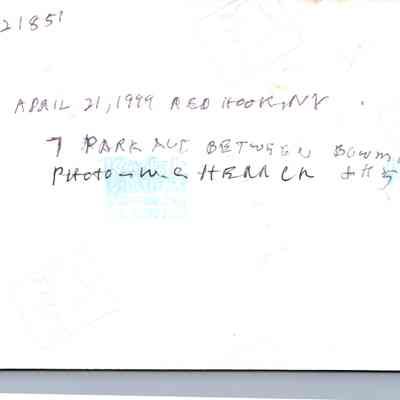 21851
APRIL 21, 1999 RED HOOK, NY
7 PARK AVE BETWEEN
PHOTO - W.C HERRICK